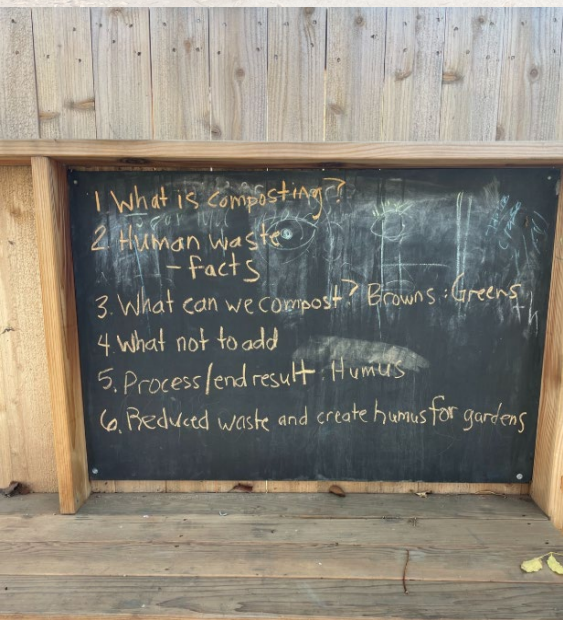 1 What is composting?
2 Human waste
- facts
3. What can we compost? Browns : Greens
4. What not to add
5. Process/end result : Humus
6. Reduced waste and create humus for gardens